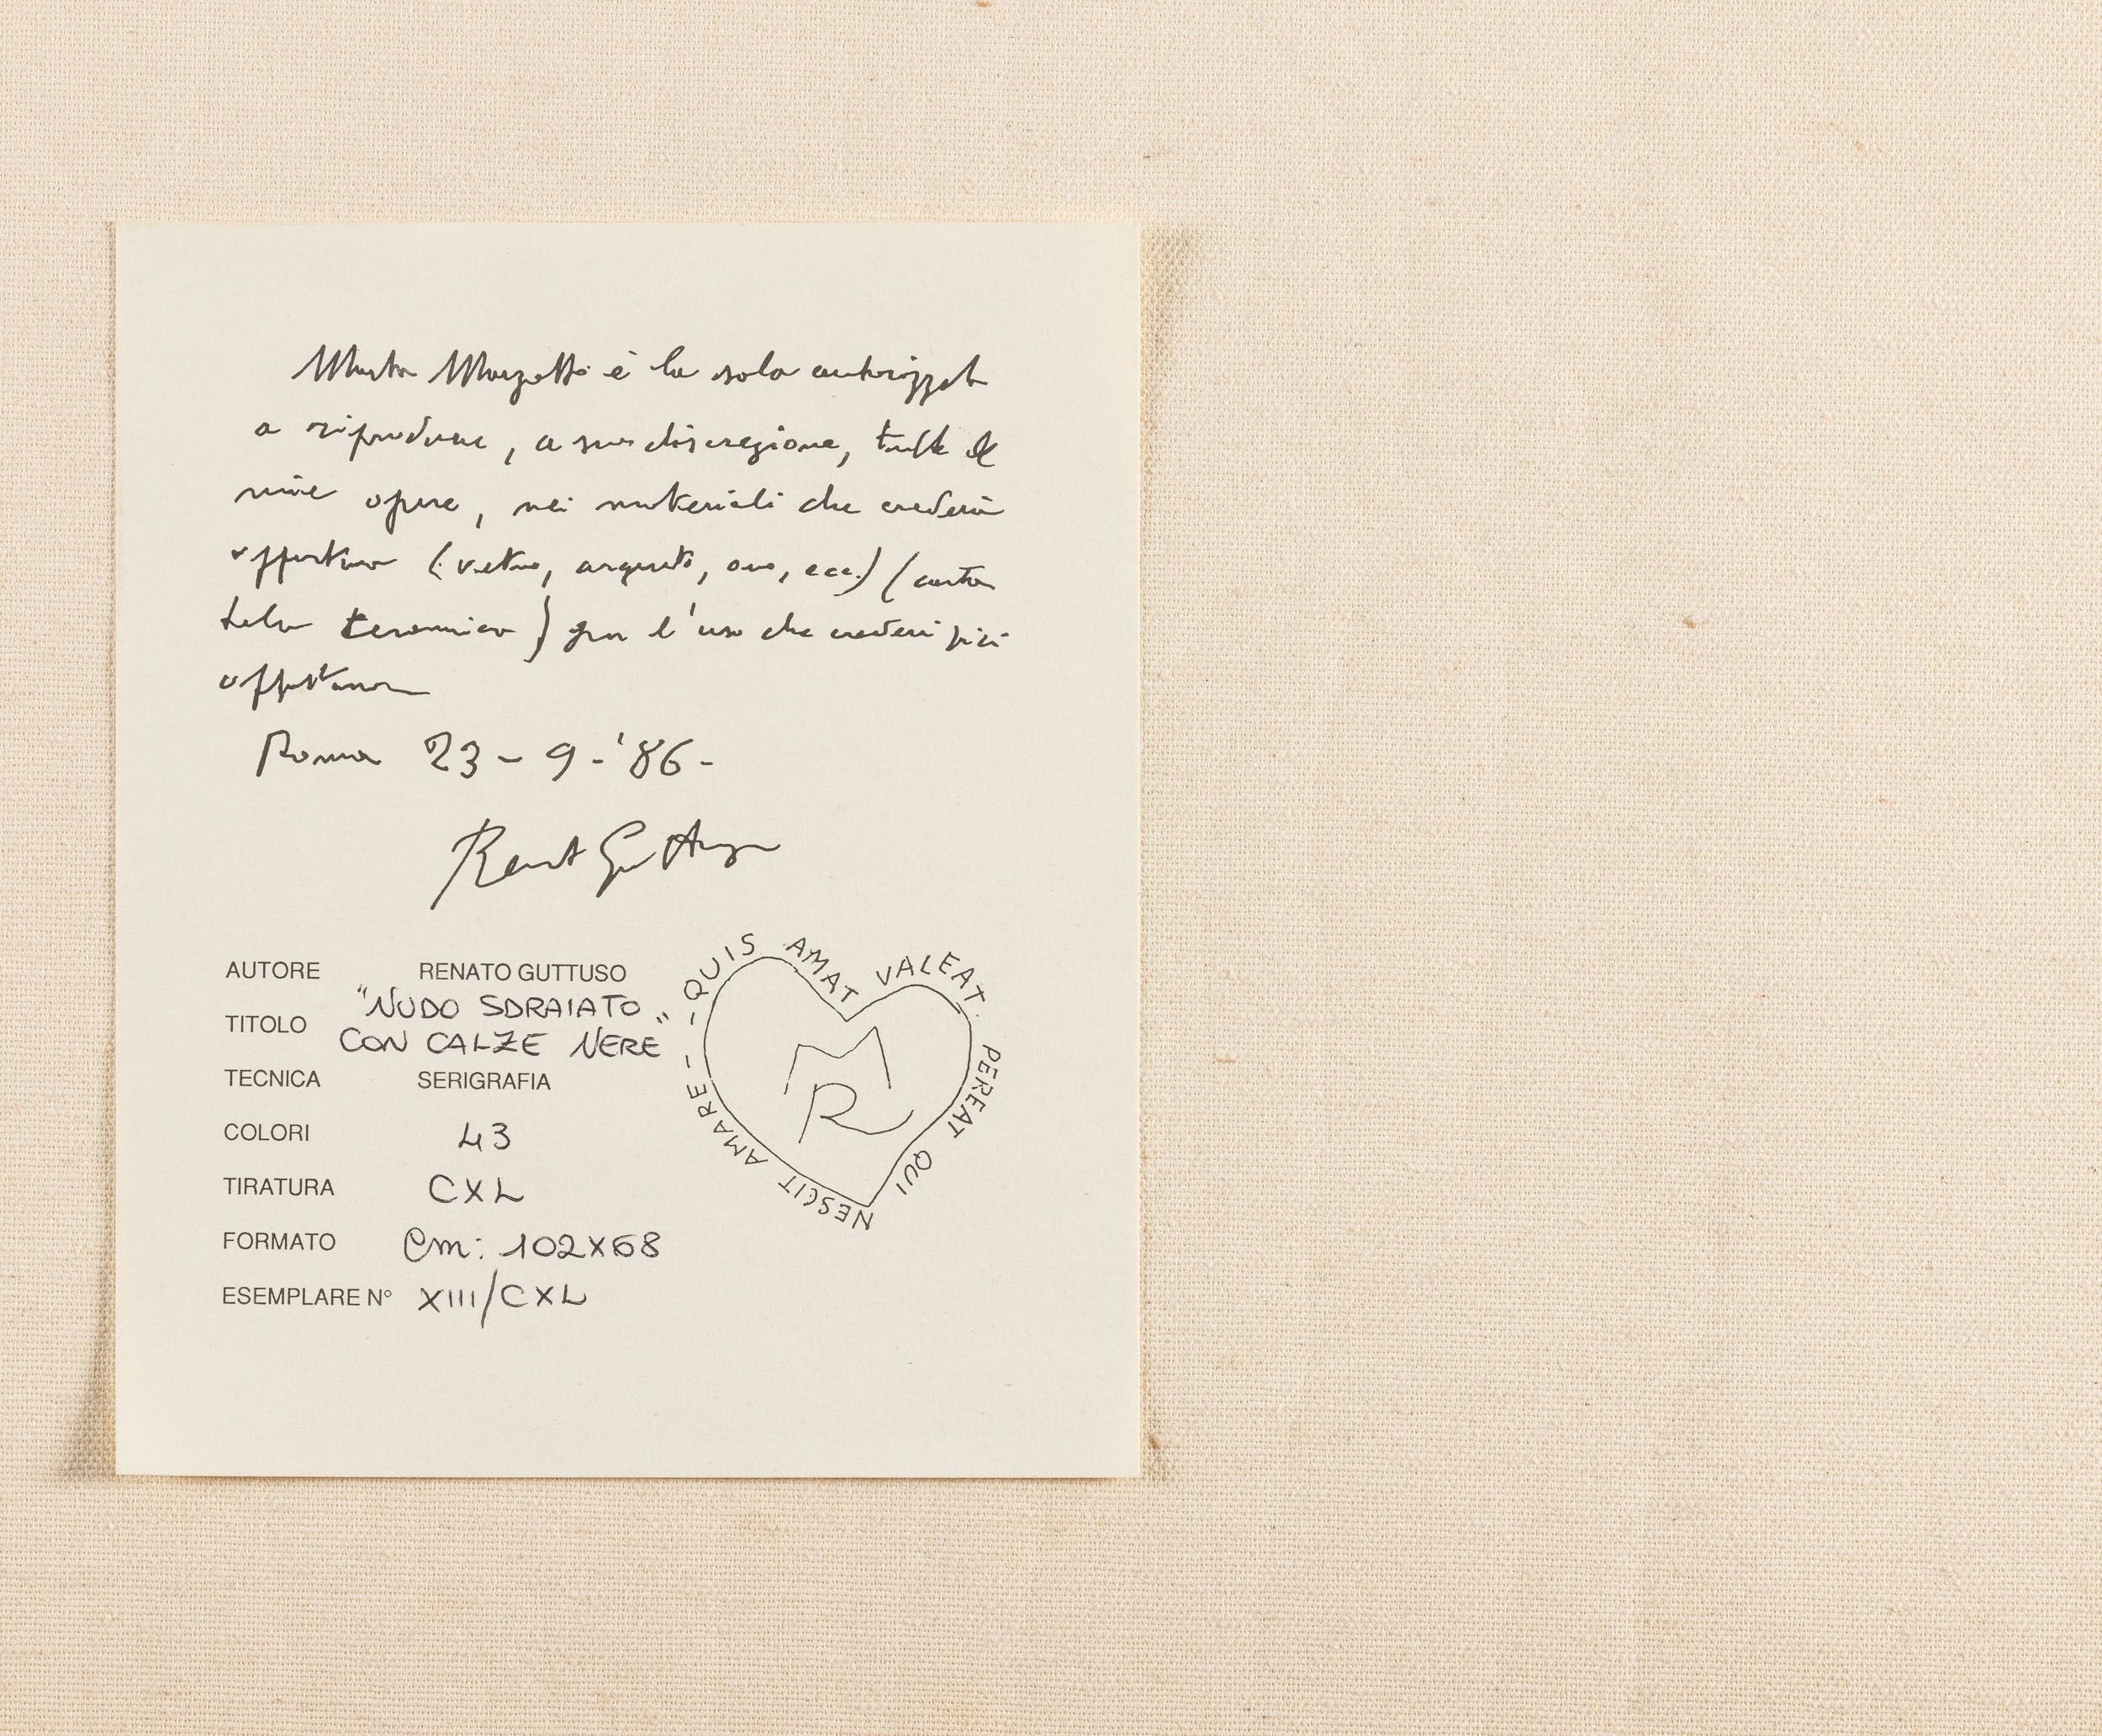 Marta Marzotto è la sola autorizzata
a riprodurre, a sua discrezione, tutte le
mie opere, nei materiali che crederà
opportuno (vetro, argento, oro, ecc.) (carta
tela ceramica) per l'uso che crederà più
opportuno
Roma 23-9-'86-
Renato Guttuso
AUTORE RENATO GUTTUSO
TITOLO "NUDO SDRAIATO
CON CALZE NERE"
TECNICA SERIGRAFIA
COLORI 43
TIRATURA CXL
FORMATO Cm: 102X68
ESEMPLARE N° XIII/CXL
QUIS AMAT VALEAT. PEREAT QUI NESCIT AMARE--
MR